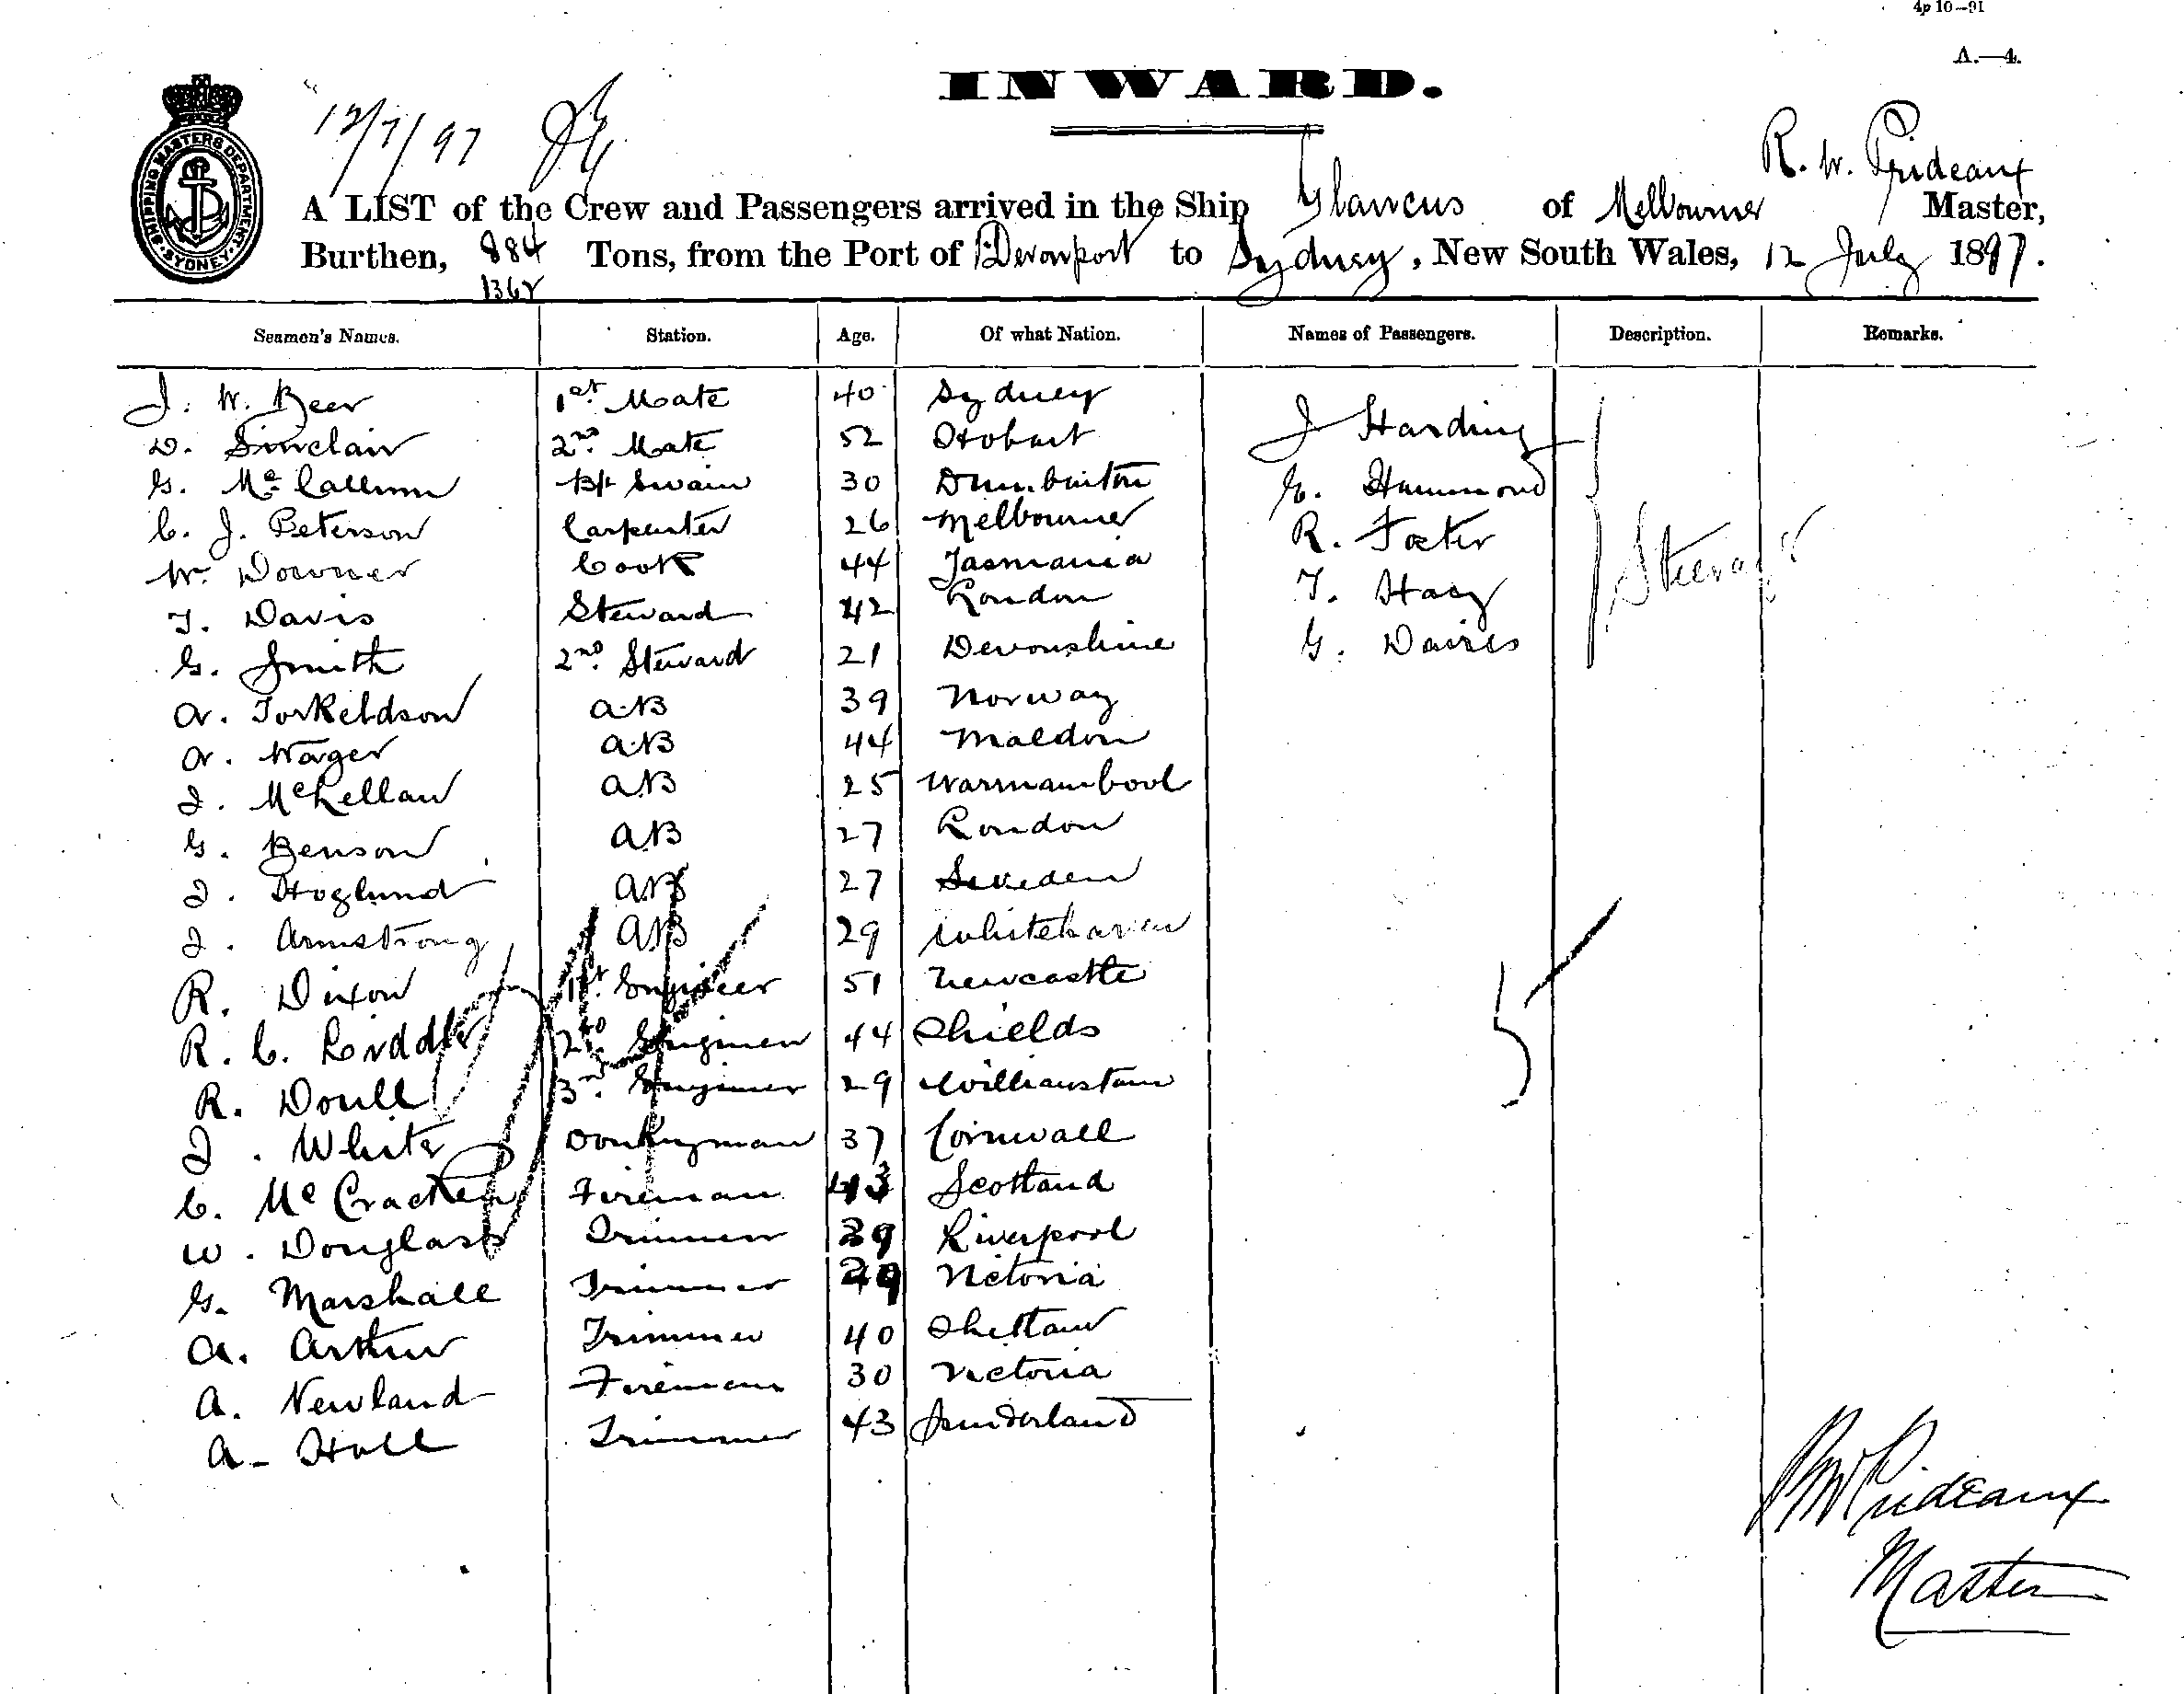 4p 10—91
A.—4.
INWARD.
12/7/97
SHIPPING MASTERS DEPARTMENT SYDNEY
R. W. Prideaux
A LIST of the Crew and Passengers arrived in the Ship Glaucus of Melbourne Master,
Burthen, 884 Tons, from the Port of Devonport to Sydney, New South Wales, 12 July 1897.
1367
Seamen's Names. Station. Age. Of what Nation. Names of Passengers. Description. Remarks.
J. W. Beer 1st Mate 40 Sydney J Harding
D. Sinclair 2nd Mate 52 Hobart G. Hammond
G. McCallum B/t Swain 30 Dumbarton R. Foster Steerage
C. J. Peterson Carpenter 26 Melbourne T. Haey
W. Downer Cook 44 Tasmania G. Davies
T. Davis Steward 42 London
G. Smith 2nd Steward 21 Devonshire
A. Torkeldson AB 39 Norway
A. Wager AB 44 Maldon
J. McLellan AB 25 Warrnambool
G. Benson AB 27 London
J. Hoglund AB 27 Sweden
J. Armstrong AB 29 Whitehaven
R. Dixon 1st Engineer 51 Newcastle
R. C. Liddle 2nd Engineer 44 Shields 5
R. Doull 3rd Engineer 29 Williamstown
J. White Donkeyman 37 Cornwall
C. McCracken Fireman 43 Scotland
W. Douglass Trimmer 39 Liverpool
G. Marshall Trimmer 29 Victoria
A. Arthur Trimmer 40 Shetland
A. Newland Fireman 30 Victoria
A. Hall Trimmer 43 Sunderland
RW Prideaux
Master